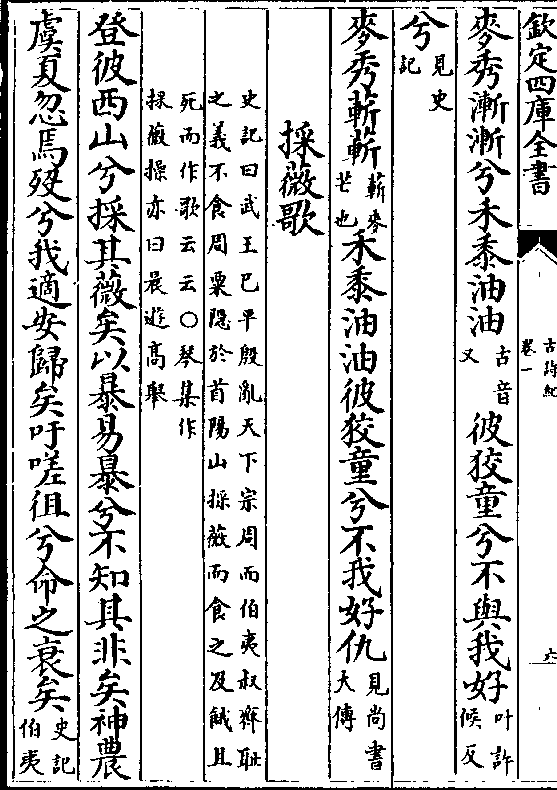 欽定四庫全書
古詩紀
卷一
六
麥秀漸漸兮禾黍油油古音又彼狡童兮不與我好叶許候反
兮見史記
麥秀蔪蔪蔪麥芒也禾黍油油彼狡童兮不我好仇見尚書大傳
採薇歌
史記曰武王已平殷亂天下宗周而伯夷叔齊恥
之義不食周粟隠於首陽山採薇而食之及餓且
死而作歌云云○琴集作
採薇操亦曰晨遊高舉
登彼西山兮採其薇矣以暴易暴兮不知其非矣神農
虞夏忽焉殁兮我適安歸矣吁嗟徂兮命之衰矣史記伯夷